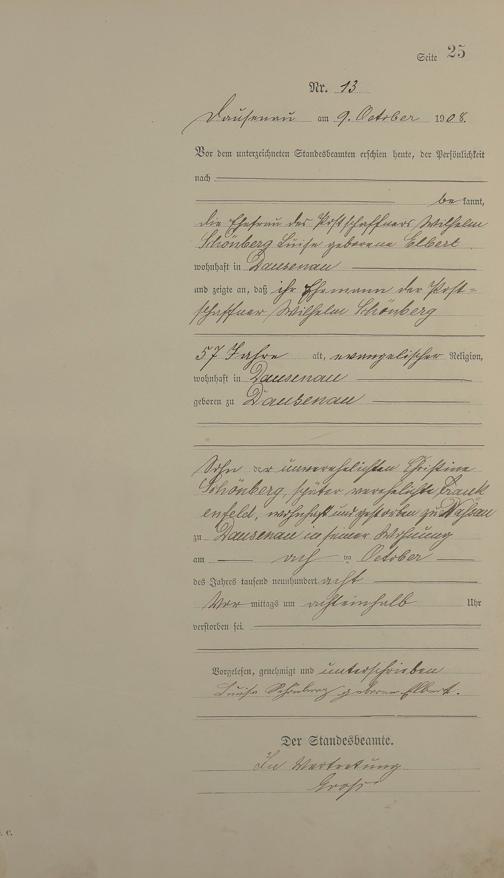 Seite 25
Nr. 13
Dausenau am 9. October 1908.
Vor dem unterzeichneten Standesbeamten erschien heute, der Persönlichkeit
nach
be kannt,
die Ehefrau des Postschaffners Wilhelm
Schönberg Luise geborene Elbert
wohnhaft in Dausenau
und zeigte an, daß ihr Ehemann der Post-
schaffner Wilhelm Schönberg
57 Jahre alt, evangelischer Religion,
wohnhaft in Dausenau
geboren zu Dausenau
Sohn der unverehelichten Christine
Schönberg, später verehelichte Frank
enfeld, wohnhaft und gestorben zu Nassau
zu Dausenau in seiner Wohnung
am acht October
des Jahres tausend neunhundert acht
Vor mittags um achteinhalb Uhr
verstorben sei.
Vorgelesen, genehmigt und unterschrieben
Luise Schönberg geborene Elbert.
Der Standesbeamte.
In Vertretung